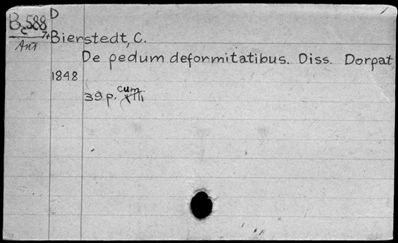 D
B c 588
Ant
Bierstedt, C.
De pedum deformitatibus. Diss. Dorpat,
1848
39 p. cum